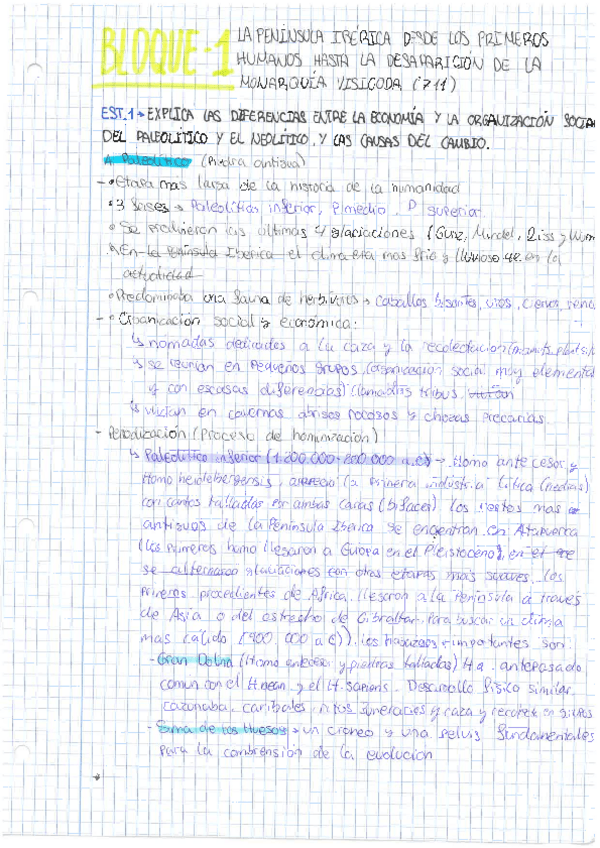 BLOQUE-1
LA PENÍNSULA IBÉRICA DESDE LOS PRIMEROS
HUMANOS HASTA LA DESAPARICIÓN DE LA
MONARQUÍA VISIGODA (711)
EST.1→ EXPLICA LAS DIFERENCIAS ENTRE LA ECONOMÍA Y LA ORGANIZACIÓN SOCIA
DEL PALEOLÍTICO Y EL NEOLÍTICO, Y LAS CAUSAS DEL CAMBIO.
A. Paleolítico (Piedra antigua)
- • Etapa mas larga de la historia de la humanidad
• 3 fases → Paleolítico inferior, P medio, P superior.
• Se produjeron las últimas 4 glaciaciones (Gunz, Mindel, Riss y Wurm
En la península Ibérica el clima era mas frío y lluvioso que en la
actualidad
• Predominaba una fauna de herbívoros → caballos bisontes, uros, ciervos, reno
- • Organización social y económica:
↳ nómadas dedicados a la caza y la recolectación
↳ se reunían en pequeños grupos (organización social muy elemental
y con escasas diferencias) llamados tribus
↳ vivían en cavernas abrigos rocosos y chozas precarias.
- Periodización (Proceso de hominización)
↳ Paleolítico inferior (1.200.000- a.C) → Homo antecesor y
Homo heidelbergensis, apareció la primera industria lítica (piedras)
con cantos tallados por ambas caras (bifaces) los restos mas
antiguos de la Península Ibérica se encuentran en Atapuerca
(los primeros humo llegaron a Europa en el Pleistoceno), en el que
se alternaron glaciaciones con otras etapas más suaves. Los
primeros procedientes de África llegaron a la Península a través
de Asia o del estrecho de Gibraltar. Para buscar un clima
mas cálido (900 000 a C)). Los hallazgos + importantes son:
- Gran Dolina (Homo antecesor y piedras talladas) Ha. antepasado
comun con el H nean. y el H. sapiens. Desarrollo físico similar,
cazonaba, canibales, ritos funerarios y caza y recolec en grupos
- Sima de los Huesos → un craneo y una pelvis fundamentales
para la comprensión de la evolución